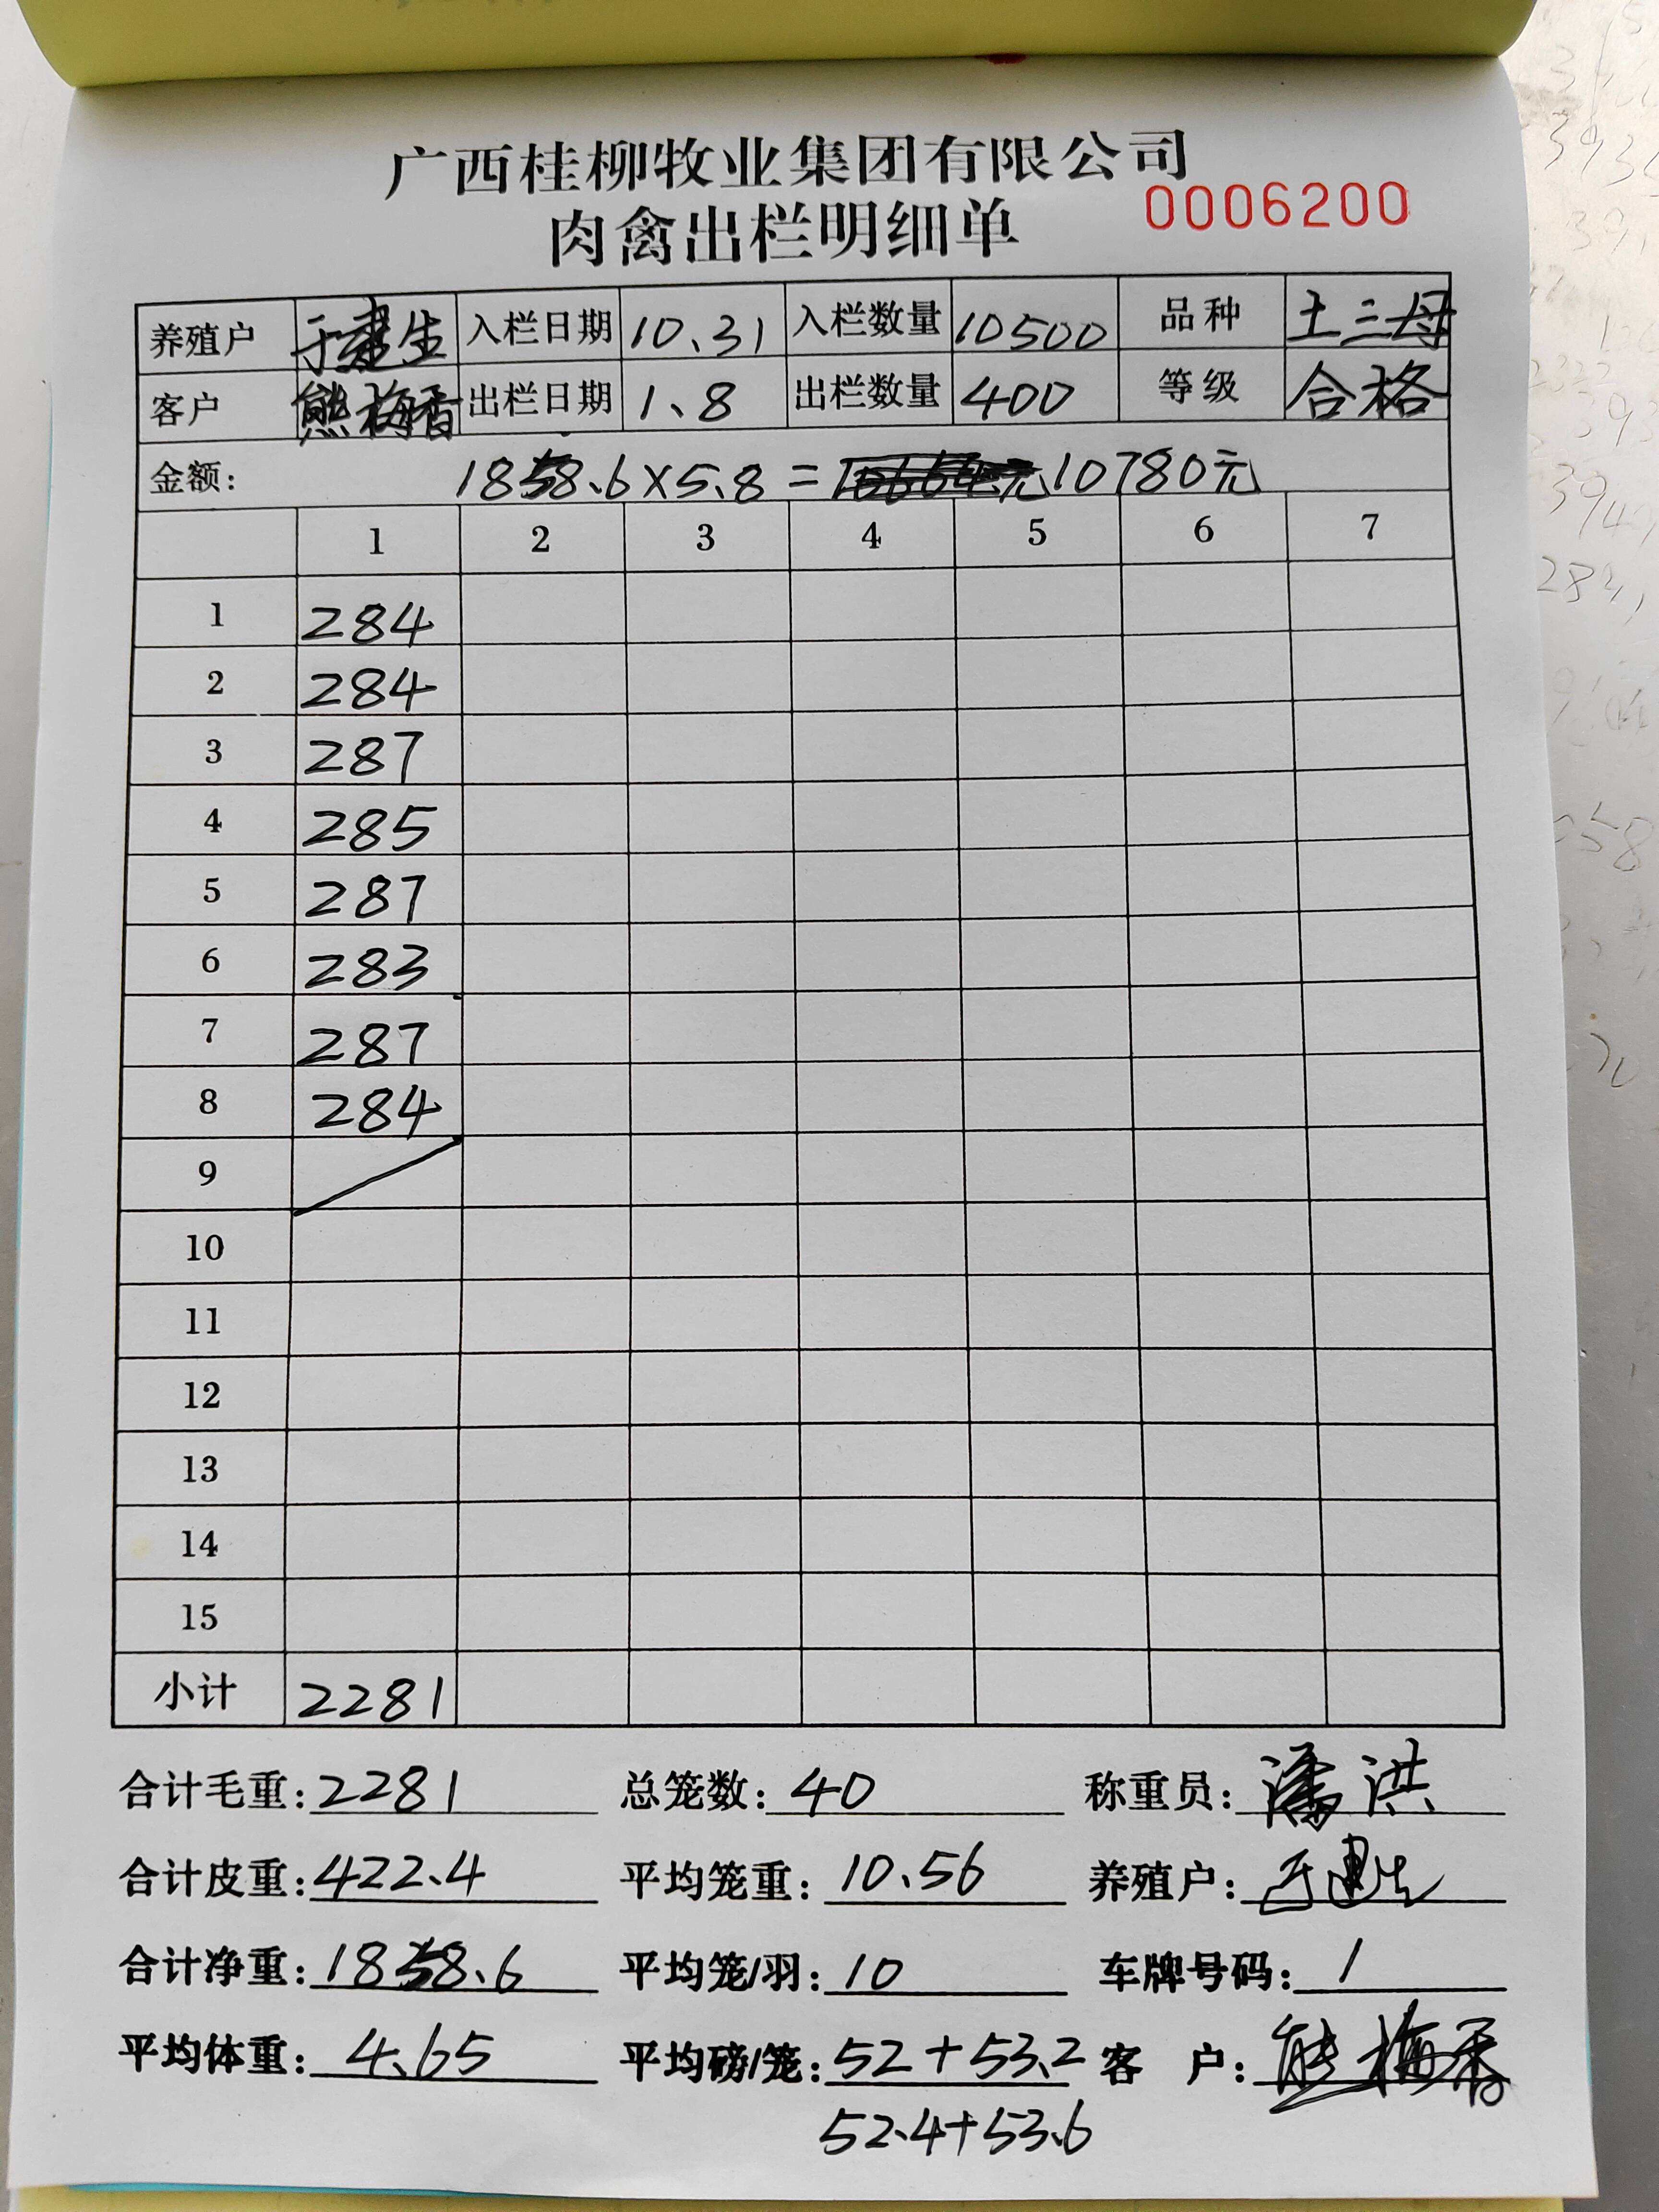 广西桂柳牧业集团有限公司
肉禽出栏明细单 0006200
养殖户 于建生 入栏日期 10、31 入栏数量 10500 品种 土三母
客户 熊梅香 出栏日期 1、8 出栏数量 400 等级 合格
金额： 1858、6×5、8= 元 10780元
1 2 3 4 5 6 7
1 284
2 284
3 287
4 285
5 287
6 283
7 287
8 284
9
10
11
12
13
14
15
小计 2281
合计毛重：2281 总笼数：40 称重员：潘洪
合计皮重：422、4 平均笼重：10、56 养殖户：于建生
合计净重：1858、6 平均笼/羽：10 车牌号码：1
平均体重：4、65 平均磅/笼：52+53、2 客 户：熊梅香
52、4+53、6